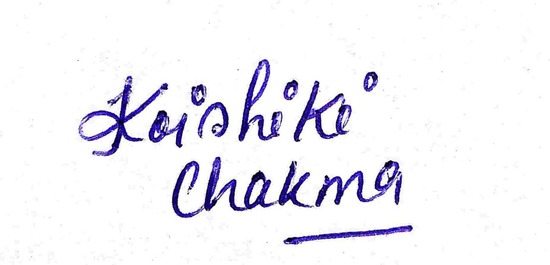 Koishiki
Chakma